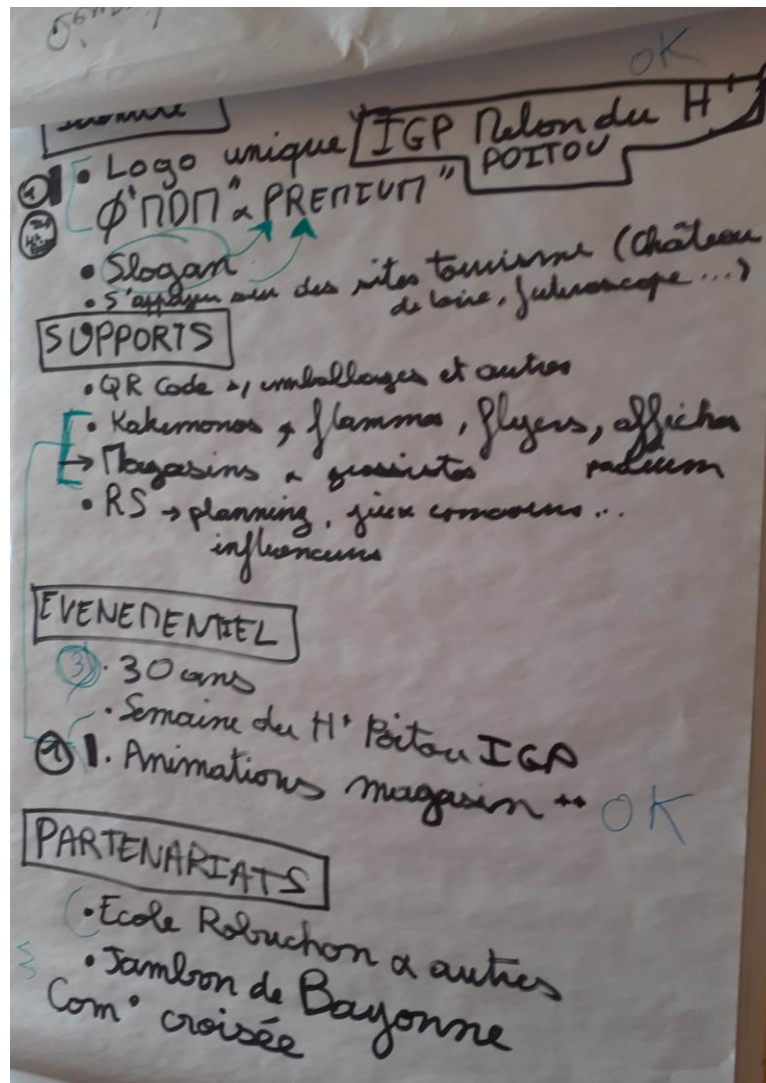 OK
• Logo unique IGP Melon du Ht
POITOU
Ø "MDM" & PREMIUM"
• Slogan
• S'appuyer sur des sites tourisme (Château
de Loire, futuroscope ...)
SUPPORTS
• QR Code →, emballages et autres
• Kakemonos & flammes, flyers, affiches
→ Magasins & grossistes
• RS → planning, jeux concours...
influenceurs
EVENEMENTIEL
③ • 30 ans
• Semaine du Ht Poitou IGP
① 1. Animations magasin ++ OK
PARTENARIATS
• Ecole Robuchon & autres
• Jambon de Bayonne
Com° croisée